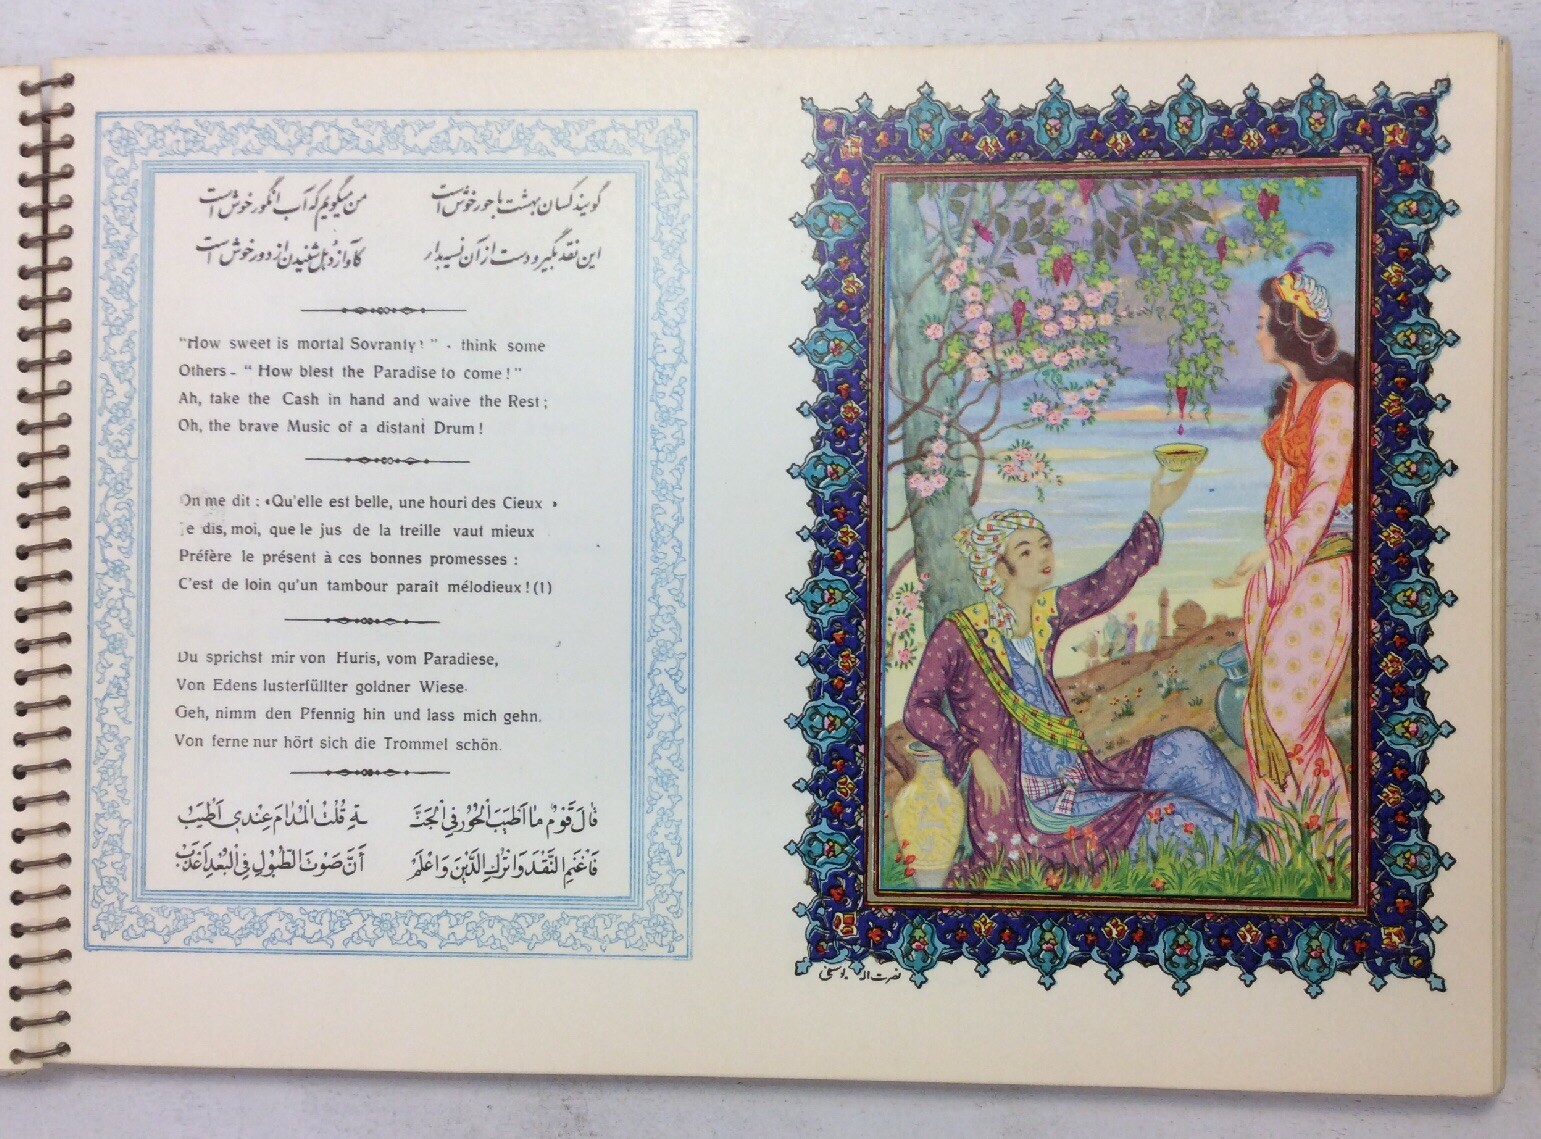 گویند کسان بهشت با حور خوش است
من میگویم که آب انگور خوش است
این نقد بگیر و دست از آن نسیه بدار
کاواز دهل شنیدن از دور خوش است
"How sweet is mortal Sovranty! " - think some
Others - " How blest the Paradise to come! "
Ah, take the Cash in hand and waive the Rest ;
Oh, the brave Music of a distant Drum !
On me dit : «Qu'elle est belle, une houri des Cieux »
Je dis, moi, que le jus de la treille vaut mieux
Préfère le présent à ces bonnes promesses :
C'est de loin qu'un tambour paraît mélodieux ! (1)
Du sprichst mir von Huris, vom Paradiese,
Von Edens lusterfüllter goldner Wiese.
Geh, nimm den Pfennig hin und lass mich gehn.
Von ferne nur hört sich die Trommel schön.
قَالَ قَوْمٌ مَا اَطْیَبَ الْحُورَ فِی الْجَنَّـ
ـةِ قُلْتُ الْمُدَامَ عِنْدِی اَطْیَبُ
فَاغْنَمِ النَّقْدَ وَاتْرُكِ الدَّیْنَ وَاعْلَمْ
اَنَّ صَوْتَ الطُّبُولِ فِی الْبُعْدِ اَعْذَبُ
نصرت اله یوسفی